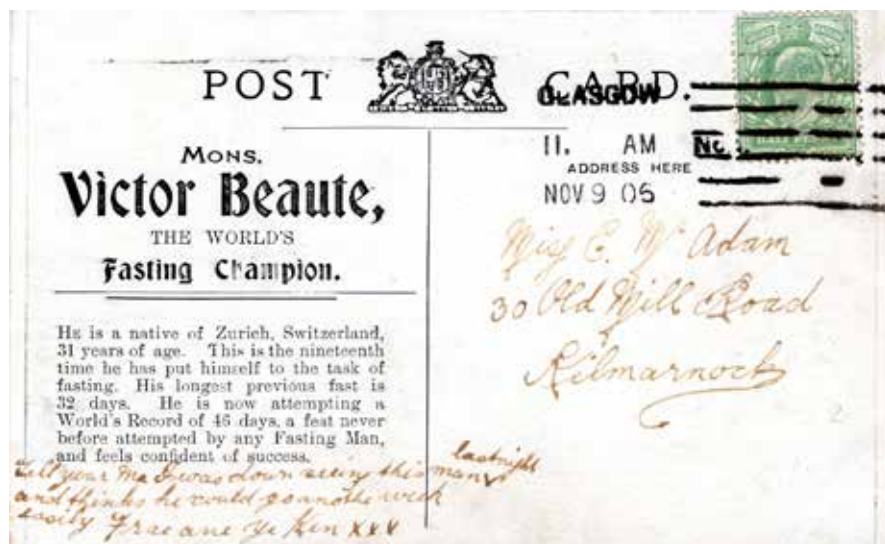 POST CARD.
GLASGOW
11. AM
ADDRESS HERE
NOV 9 05
MONS.
Victor Beaute,
THE WORLD'S
Fasting Champion.
HE is a native of Zurich, Switzerland,
31 years of age. This is the nineteenth
time he has put himself to the task of
fasting. His longest previous fast is
32 days. He is now attempting a
World's Record of 46 days, a feat never
before attempted by any Fasting Man,
and feels confident of success.
last night
Tell your Ma I was down seeing this man
and thinks he could go another week
easily Frae ane ye Ken xxx
Miss C. Mc Adam
30 Old Mill Road
Kilmarnock